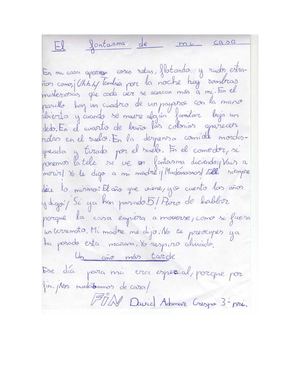 El fantasma de mi casa
En mi casa aparecen cosas rotas, flotando y ruidos extra-
ños como ¡Uhh! También por la noche hay sombras
misteriosas que cada vez se acercan más a mí. En el
pasillo hay un cuadro de un payaso con la mano
abierta y cuando se muere algún familiar baja un
dedo. En el cuarto de baño las colonias aparecen
rotas en el suelo. En la despensa comida mordis-
queada y tirada por el suelo. En el comedor, se
ponemos la tele se ve un fantasma diciendo: ¡Vais a
morir! Yo le digo a mi madre: ¡Mudémonos! Ella siempre
lo mismo: El año que viene, ya cuento los años
y digo: ¡Si ya han pasado 5! Paro de hablar
porque la casa empieza a moverse, como si fuera
un terremoto. Mi madre me dijo: No te preocupes ya
ha pasado esta, mañana. Yo respiro aliviado.
Un año más tarde
Ese día para mí era especial, porque por
fin, ¡Nos mudábamos de casa!
FIN David Crespo 3º